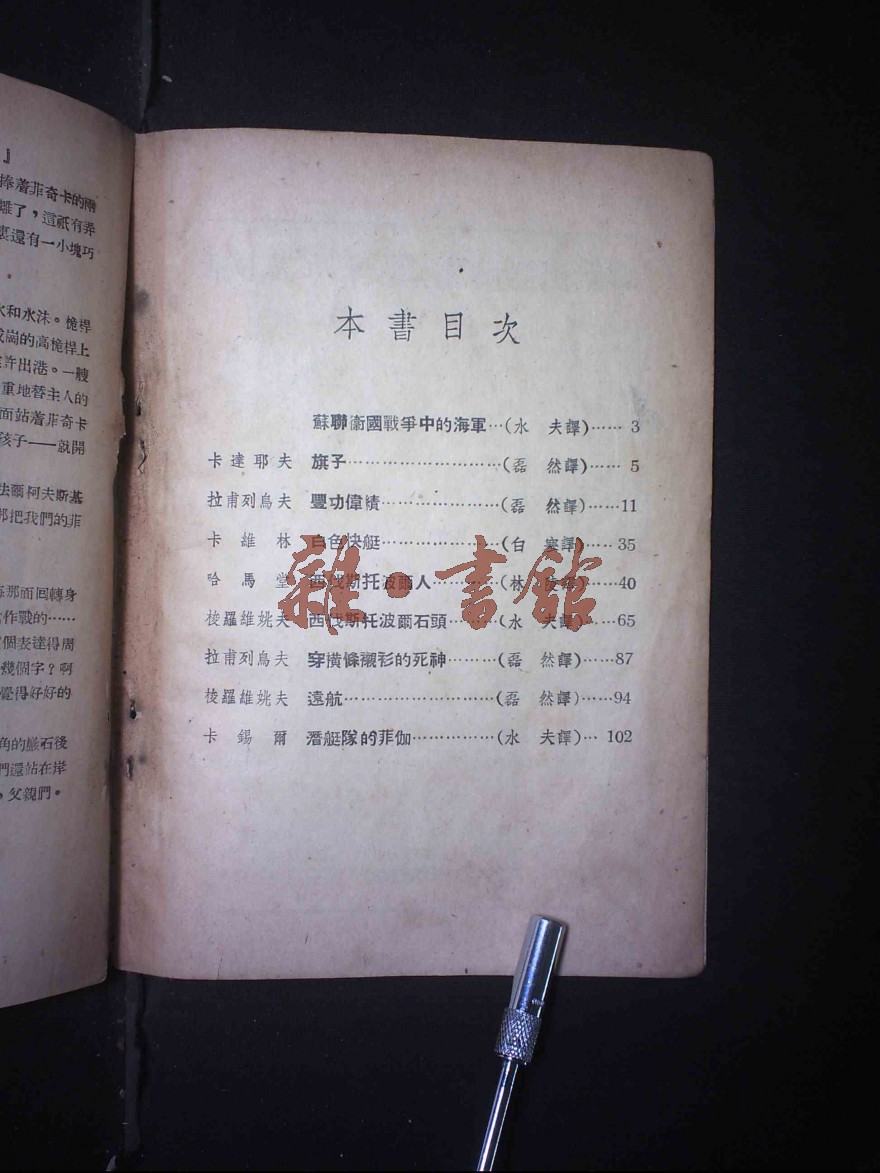 』
捧着菲奇卡的兩
離了，這祇有弄
裏還有一小塊巧
。
水和水沫。桅桿
崗的高桅桿上
許出港。一艘
重地替主人的
面站着菲奇卡
孩子——就開
法爾阿夫斯基
那把我們的菲
那面回轉身
作戰的……
個表達得周
幾個字？啊
覺得好好的
角的巖石後
們還站在岸
，父親們。
本書目次
蘇聯衞國戰爭中的海軍…(水　夫譯)…… 3
卡達耶夫　旗子………………………(磊　然譯)…… 5
拉甫列烏夫　豐功偉績…………………(磊　然譯)……11
卡維林　白色快艇…………………(白　寒譯)…… 35
哈馬堂　西伐斯托波爾人…………(林　譯)……40
梭羅維姚夫　西伐斯托波爾石頭………(水　夫譯)……65
拉甫列烏夫　穿橫條襯衫的死神………(磊　然譯)……87
梭羅維姚夫　遠航………………………(磊　然譯)……94
卡錫爾　潛艇隊的菲伽……………(水　夫譯)… 102
雜·書館